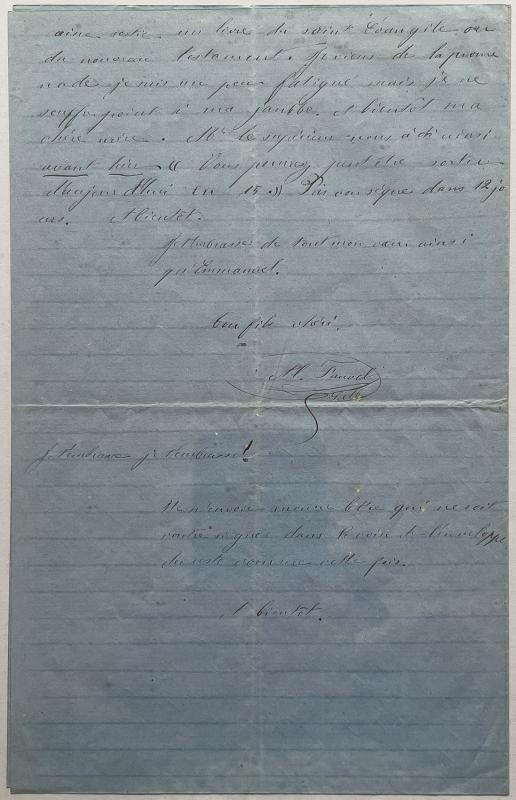 aine sortie un livre du saint Évangile ou
du nouveau testament. Je viens de la prome
nade je suis un peu fatigué mais je ne
souffre point à ma jambe. A bientôt ma
chère mère. Mr le supérieur nous a dit ainsi
avant hier « Vous pourrez peut être sortir
d'aujourd'hui en 15. » Pas consigne dans 12 jo
urs. A bientôt.
Je t'embrasse de tout mon cœur ainsi
qu'Emmanuel.
Ton fils chéri.
M.
Je t'embrasse je t'embrasse!
Ne m'envoie aucune lettre qui ne soit
contresignée dans le coin de l'enveloppe
du reste comme cette fois.
A bientôt.